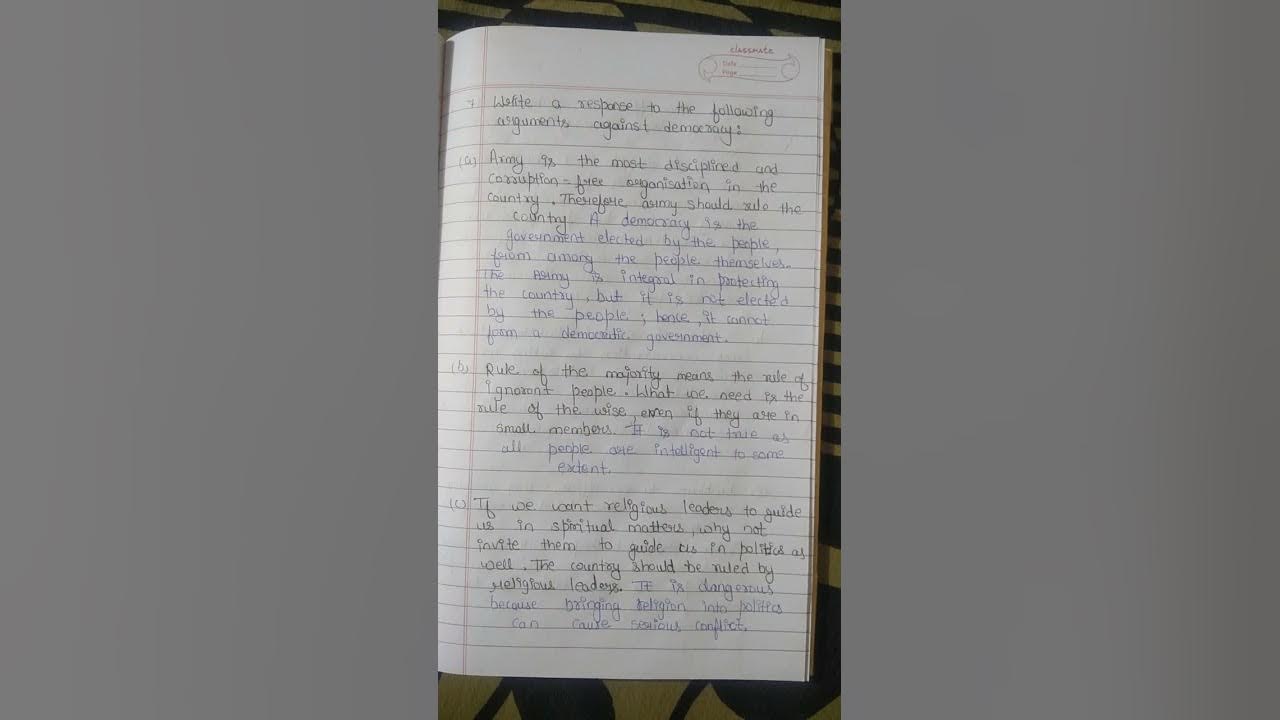 classmate
Date
Page
7. Write a response to the following
arguments against democracy:
(a) Army is the most disciplined and
corruption-free organisation in the
country. Therefore army should rule the
country. A democracy is the
government elected by the people,
from among the people themselves.
The Army is integral in protecting
the country, but it is not elected
by the people; hence, it cannot
form a democratic government.
(b) Rule of the majority means the rule of
ignorant people. What we need is the
rule of the wise, even if they are in
small members. It is not true as
all people are intelligent to some
extent.
(c) If we want religious leaders to guide
us in spiritual matters, why not
invite them to guide us in politics as
well. The country should be ruled by
religious leaders. It is dangerous
because bringing religion into politics
can cause serious conflict.